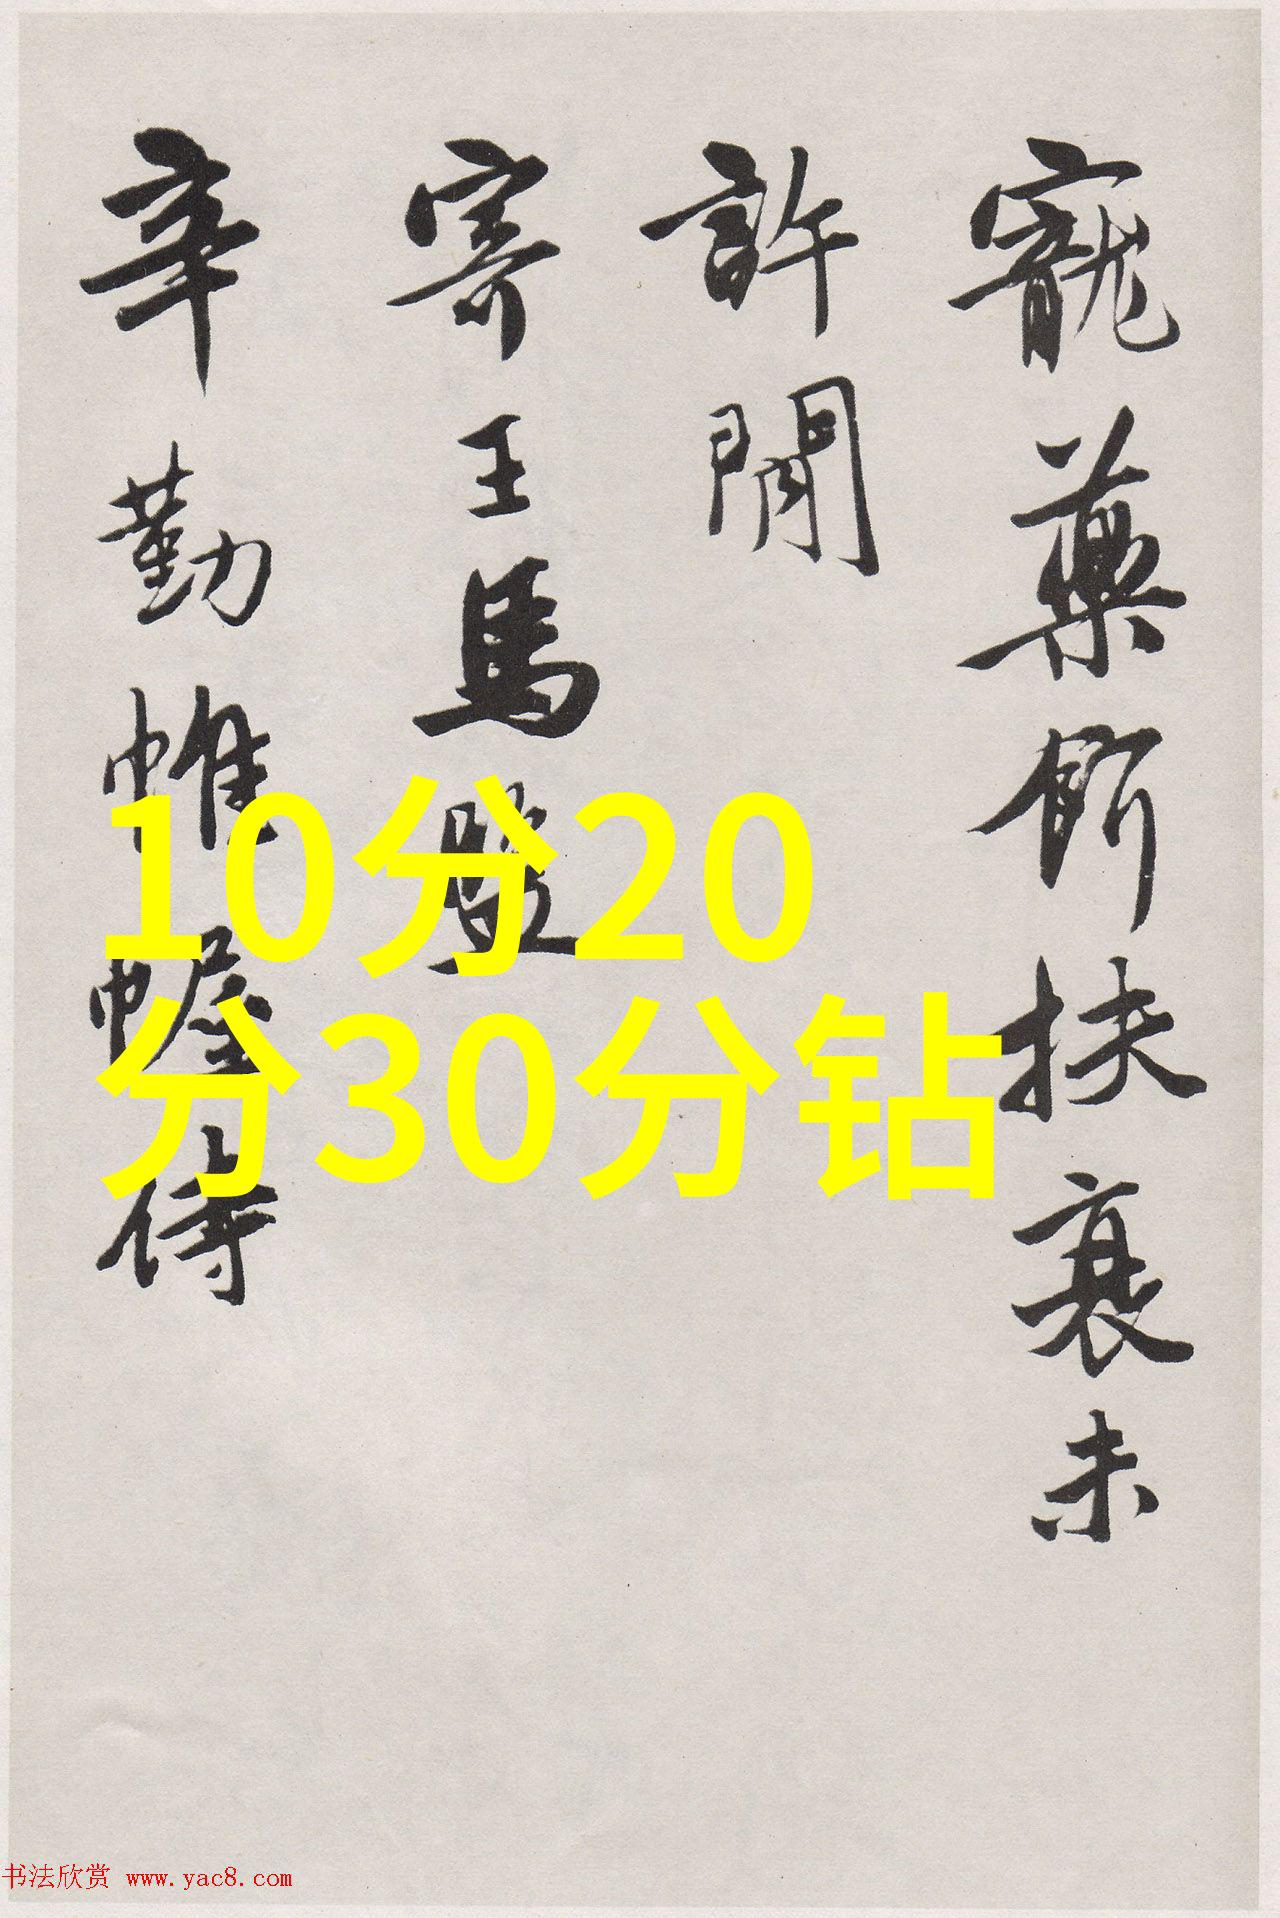 寵藥餌扶衰未
許閒
寄王馬監
辛勤帷幄侍
10分20
分30分钻
书法欣赏 www.yac8.com